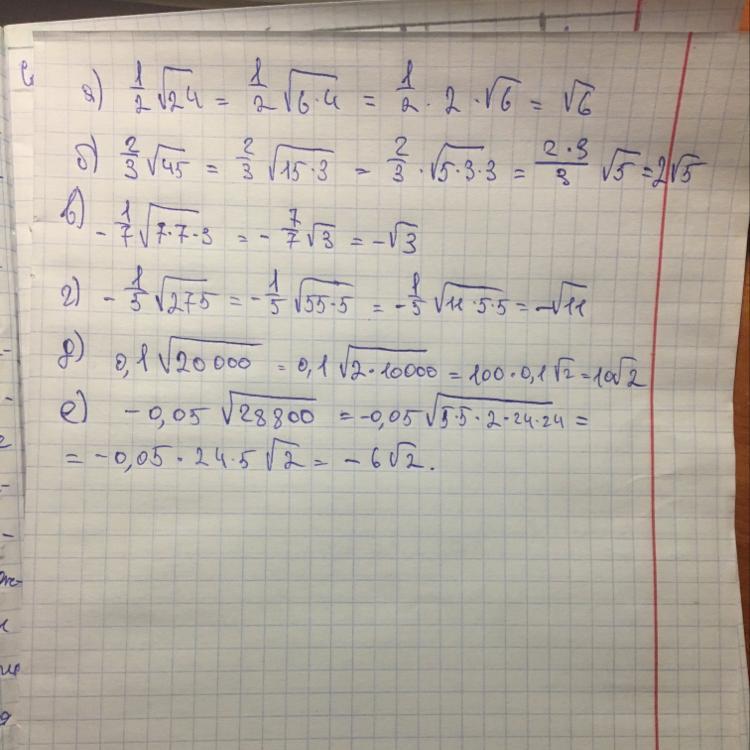 а) 1/2 √24 = 1/2 √6·4 = 1/2 · 2 · √6 = √6
б) 2/3 √45 = 2/3 √15·3 = 2/3 · √5·3·3 = 2·3/3 √5 = 2√5
в) - 1/7 √7·7·3 = - 7/7 √3 = -√3
г) - 1/5 √275 = - 1/5 √55·5 = - 1/5 √11·5·5 = -√11
д) 0,1 √20000 = 0,1 √2·10000 = 100·0,1√2 = 10√2
е) -0,05 √28800 = -0,05 √5·5·2·24·24 =
= -0,05·24·5 √2 = -6√2.